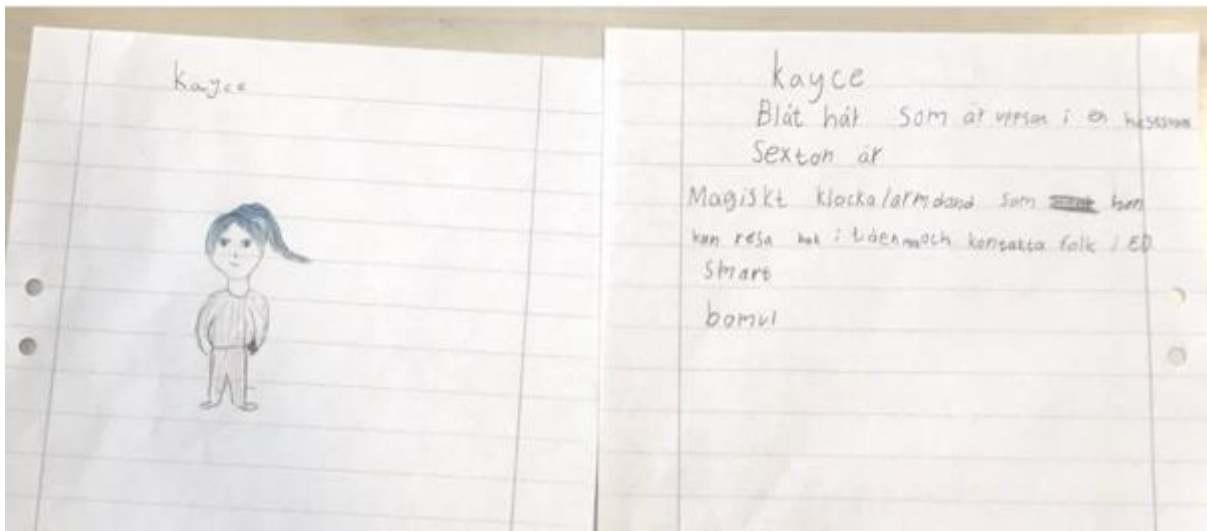 kayce
kayce
Blåt hår som är uppsat i en hästsvans
Sexton år
Magiskt klocka/armdand som hon
kan resa bak i tiden och kontakta folk i ED
smart
bomul